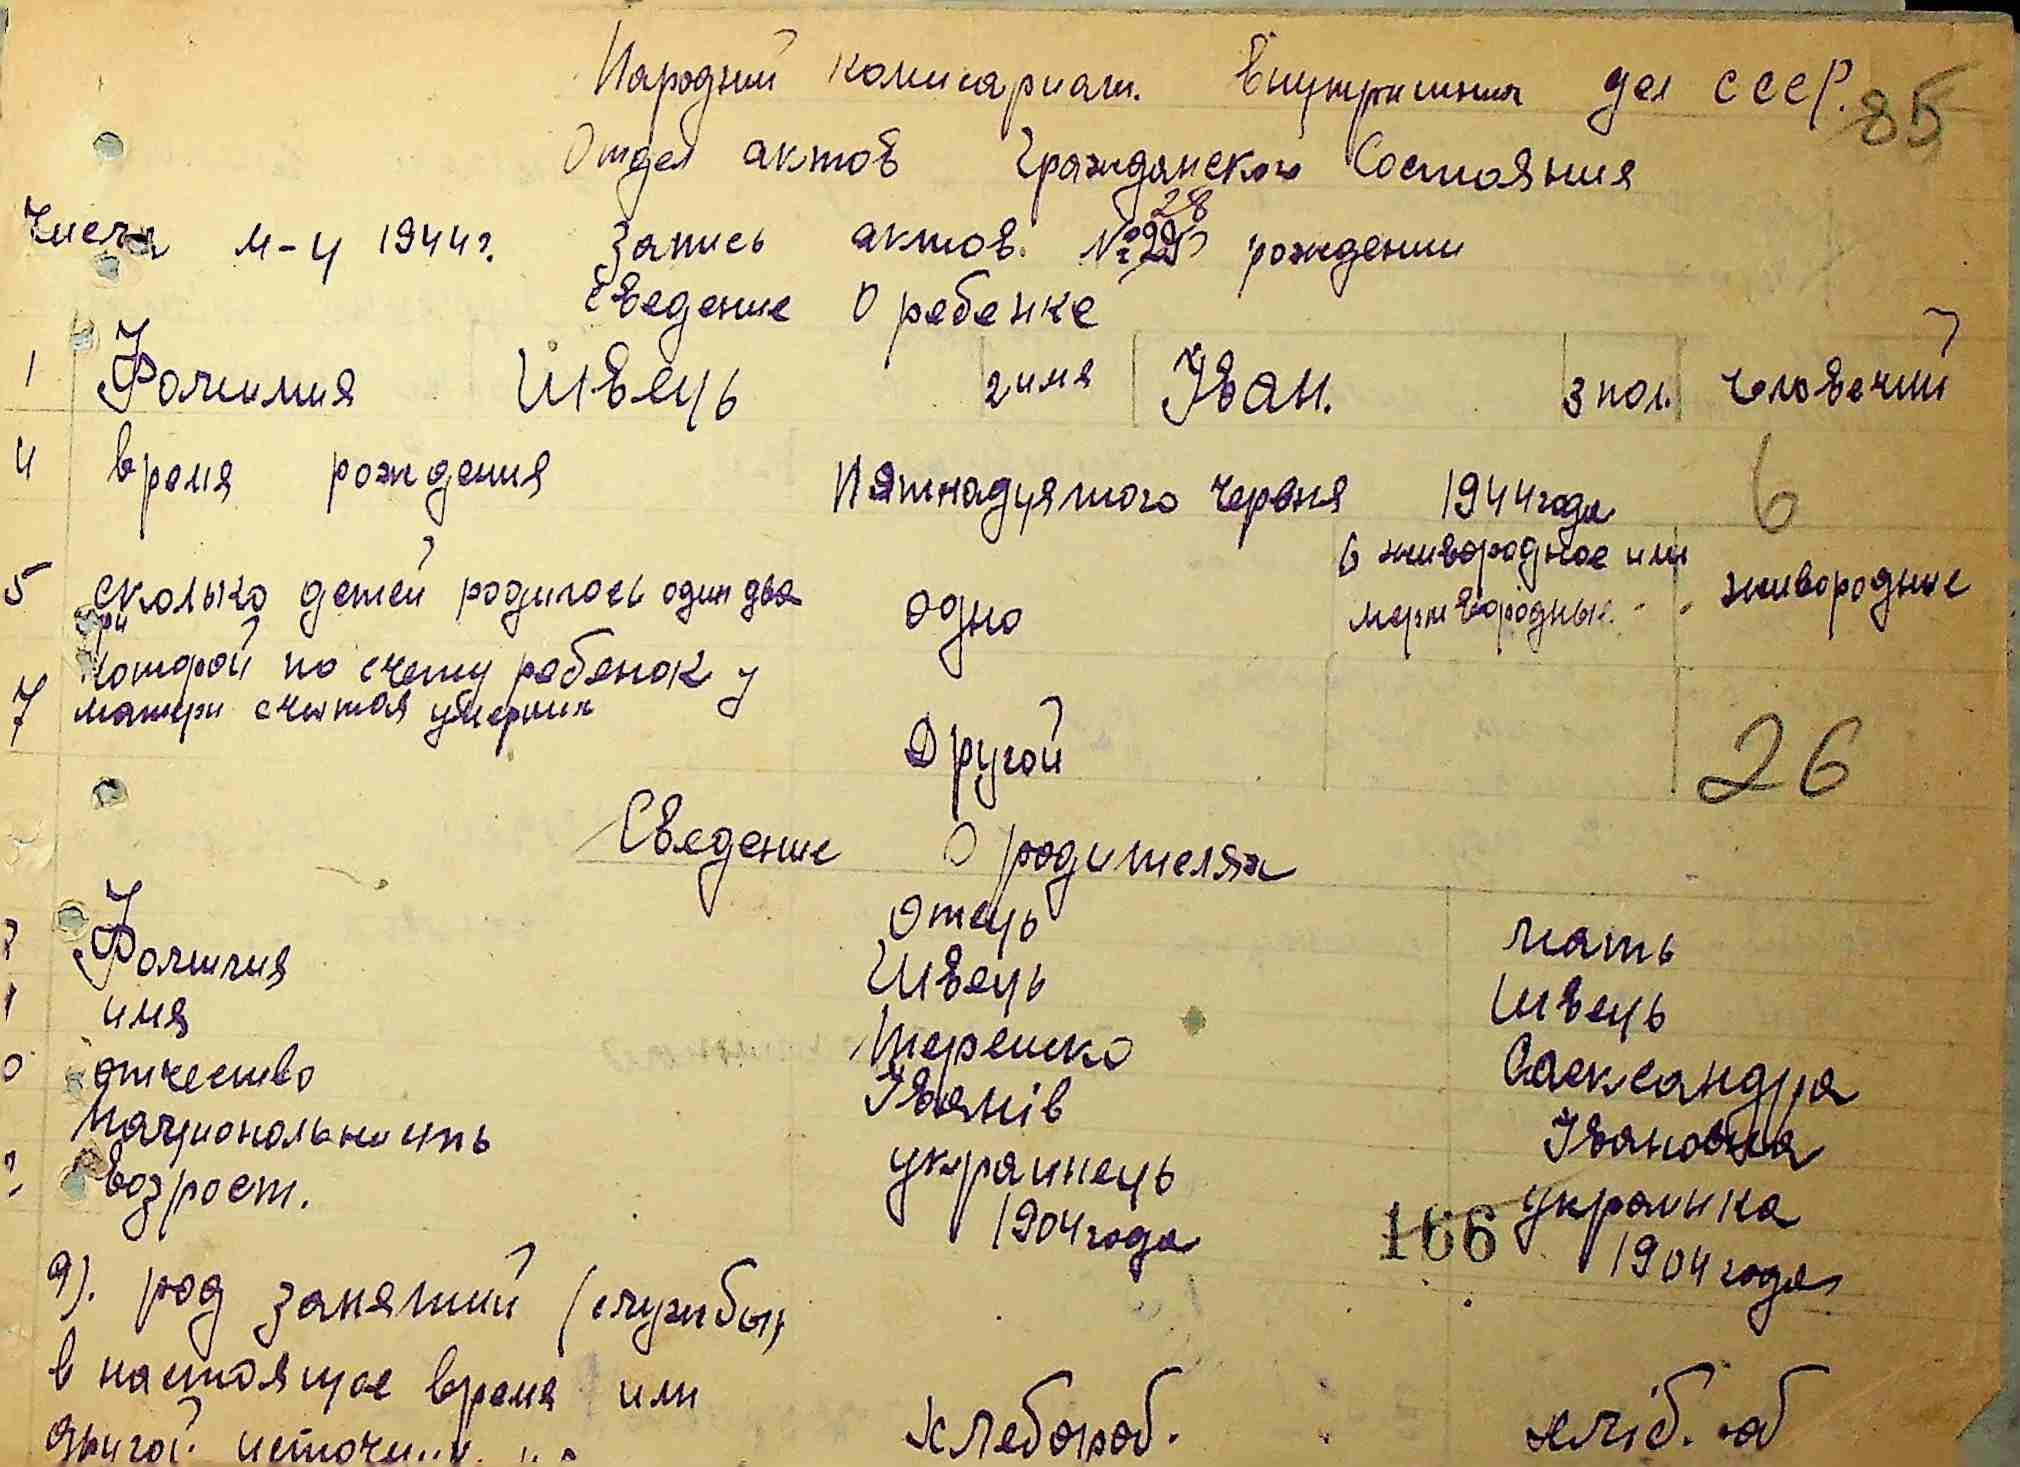 Народний комисариат. Внутришних дел СССР. 85
Отдел актов Гражданского Состояния
Числа м-ц 1944 г. Запись актов. № 28 рождении
Сведение О ребенке
1 Фомилия Швець 2 имя Іван. 3 пол. человечий
4 время рождения Пятнадцятого червня 1944 года 6
5 сколько детей родилось один два одно 6 живородное или живородные
ри мертвородные.
которой по счету ребенок у
7 матери считая умерших Другой 26
Сведение О родителях
Отець мать
Фомилия Швець Швець
имя Терешко Олександра
отчество Іванів Івановна
Национольность украинець украинка
возрост. 1904 года 1904 года
166
9). род занятий (службы)
в настоящое время или
другой хлебороб. хліб. об